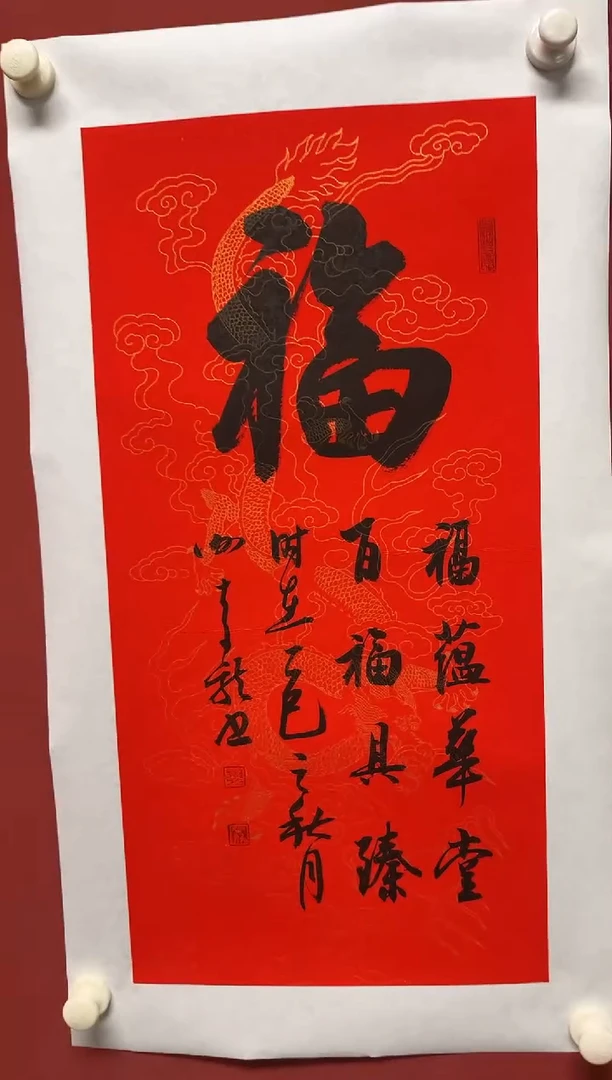 福
福蕴华堂
百福具臻
时在乙巳之秋月